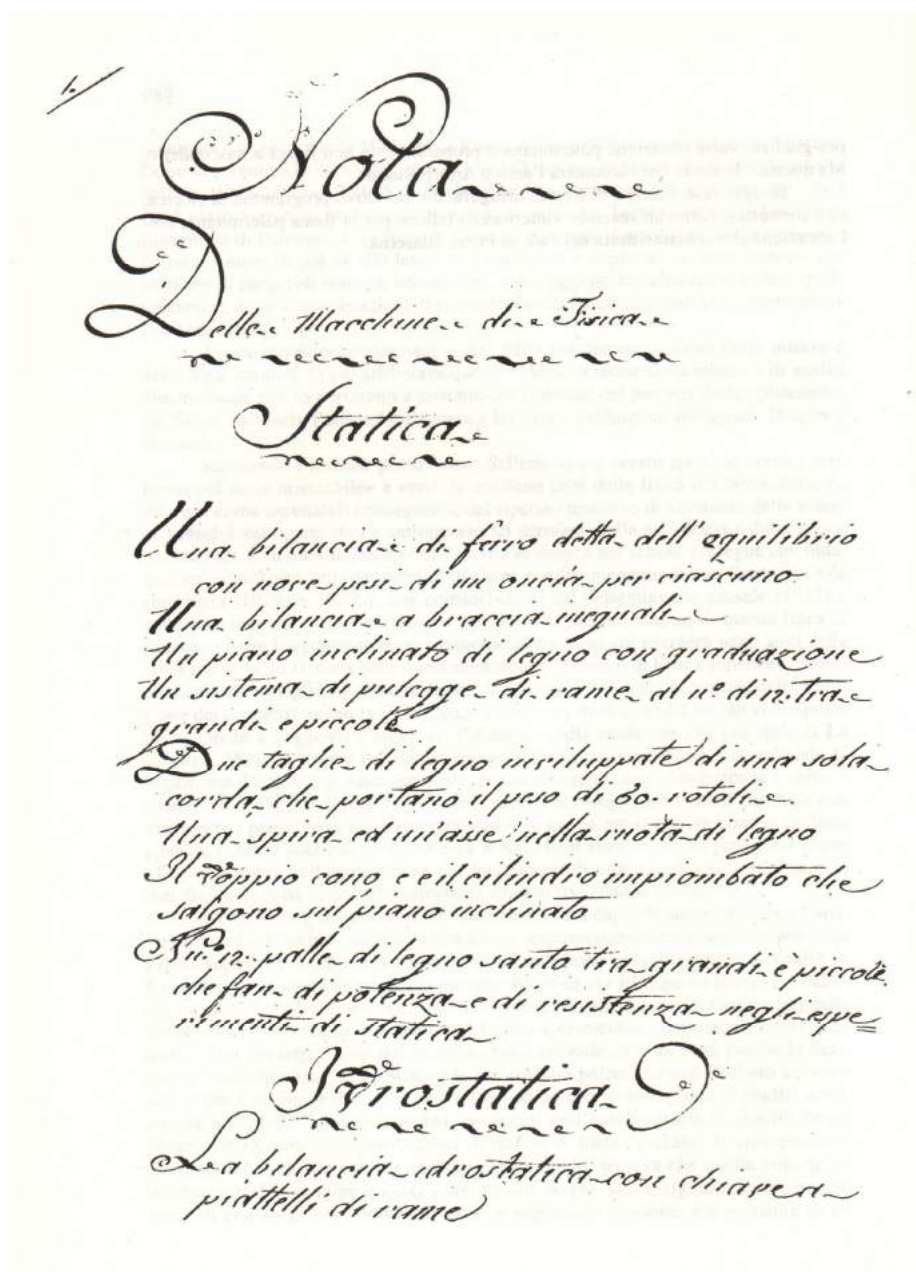 1.
Nota
Delle Macchine di Fisica
Statica
Una bilancia di ferro detta dell'equilibrio
con nove pesi di un oncia per ciascuno
Una bilancia a braccia ineguali
Un piano inclinato di legno con graduazione
Un sistema di pulegge di rame al n.º di 12. tra
grandi e piccole
Due taglie di legno inviluppate di una sola
corda, che portano il peso di 60. rotoli
Una spira ed un'asse nella ruota di legno
Il doppio cono e il cilindro impiombato che
salgono sul piano inclinato
Nu.º 12. palle di legno santo tra grandi e piccole
che fan di potenza e di resistenza negli espe=
rimenti di statica
Idrostatica
La bilancia idrostatica con chiave a
piattelli di rame